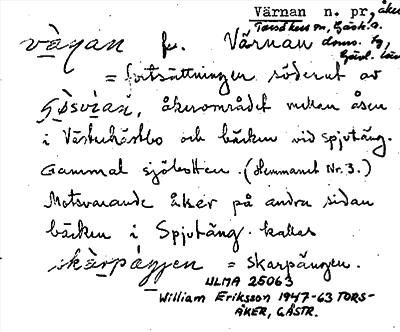 Värnan n. pr., åker
Torsåkers sn, Gästr.
doms. tg,
Gävl. län
vä̀ṇan fr. Värnan
= fortsättningen söderut av
åkerområdet mellan åsen
i Västerhästbo och bäcken vid Spjutäng.
Gammal sjöbotten. (Hemmanet Nr. 3.)
Motsvarande åker på andra sidan
bäcken i Spjutäng kallas
= Skarpängen.
ULMA 25063
William Eriksson 1947-63 TORS-
ÅKER, GÄSTR.